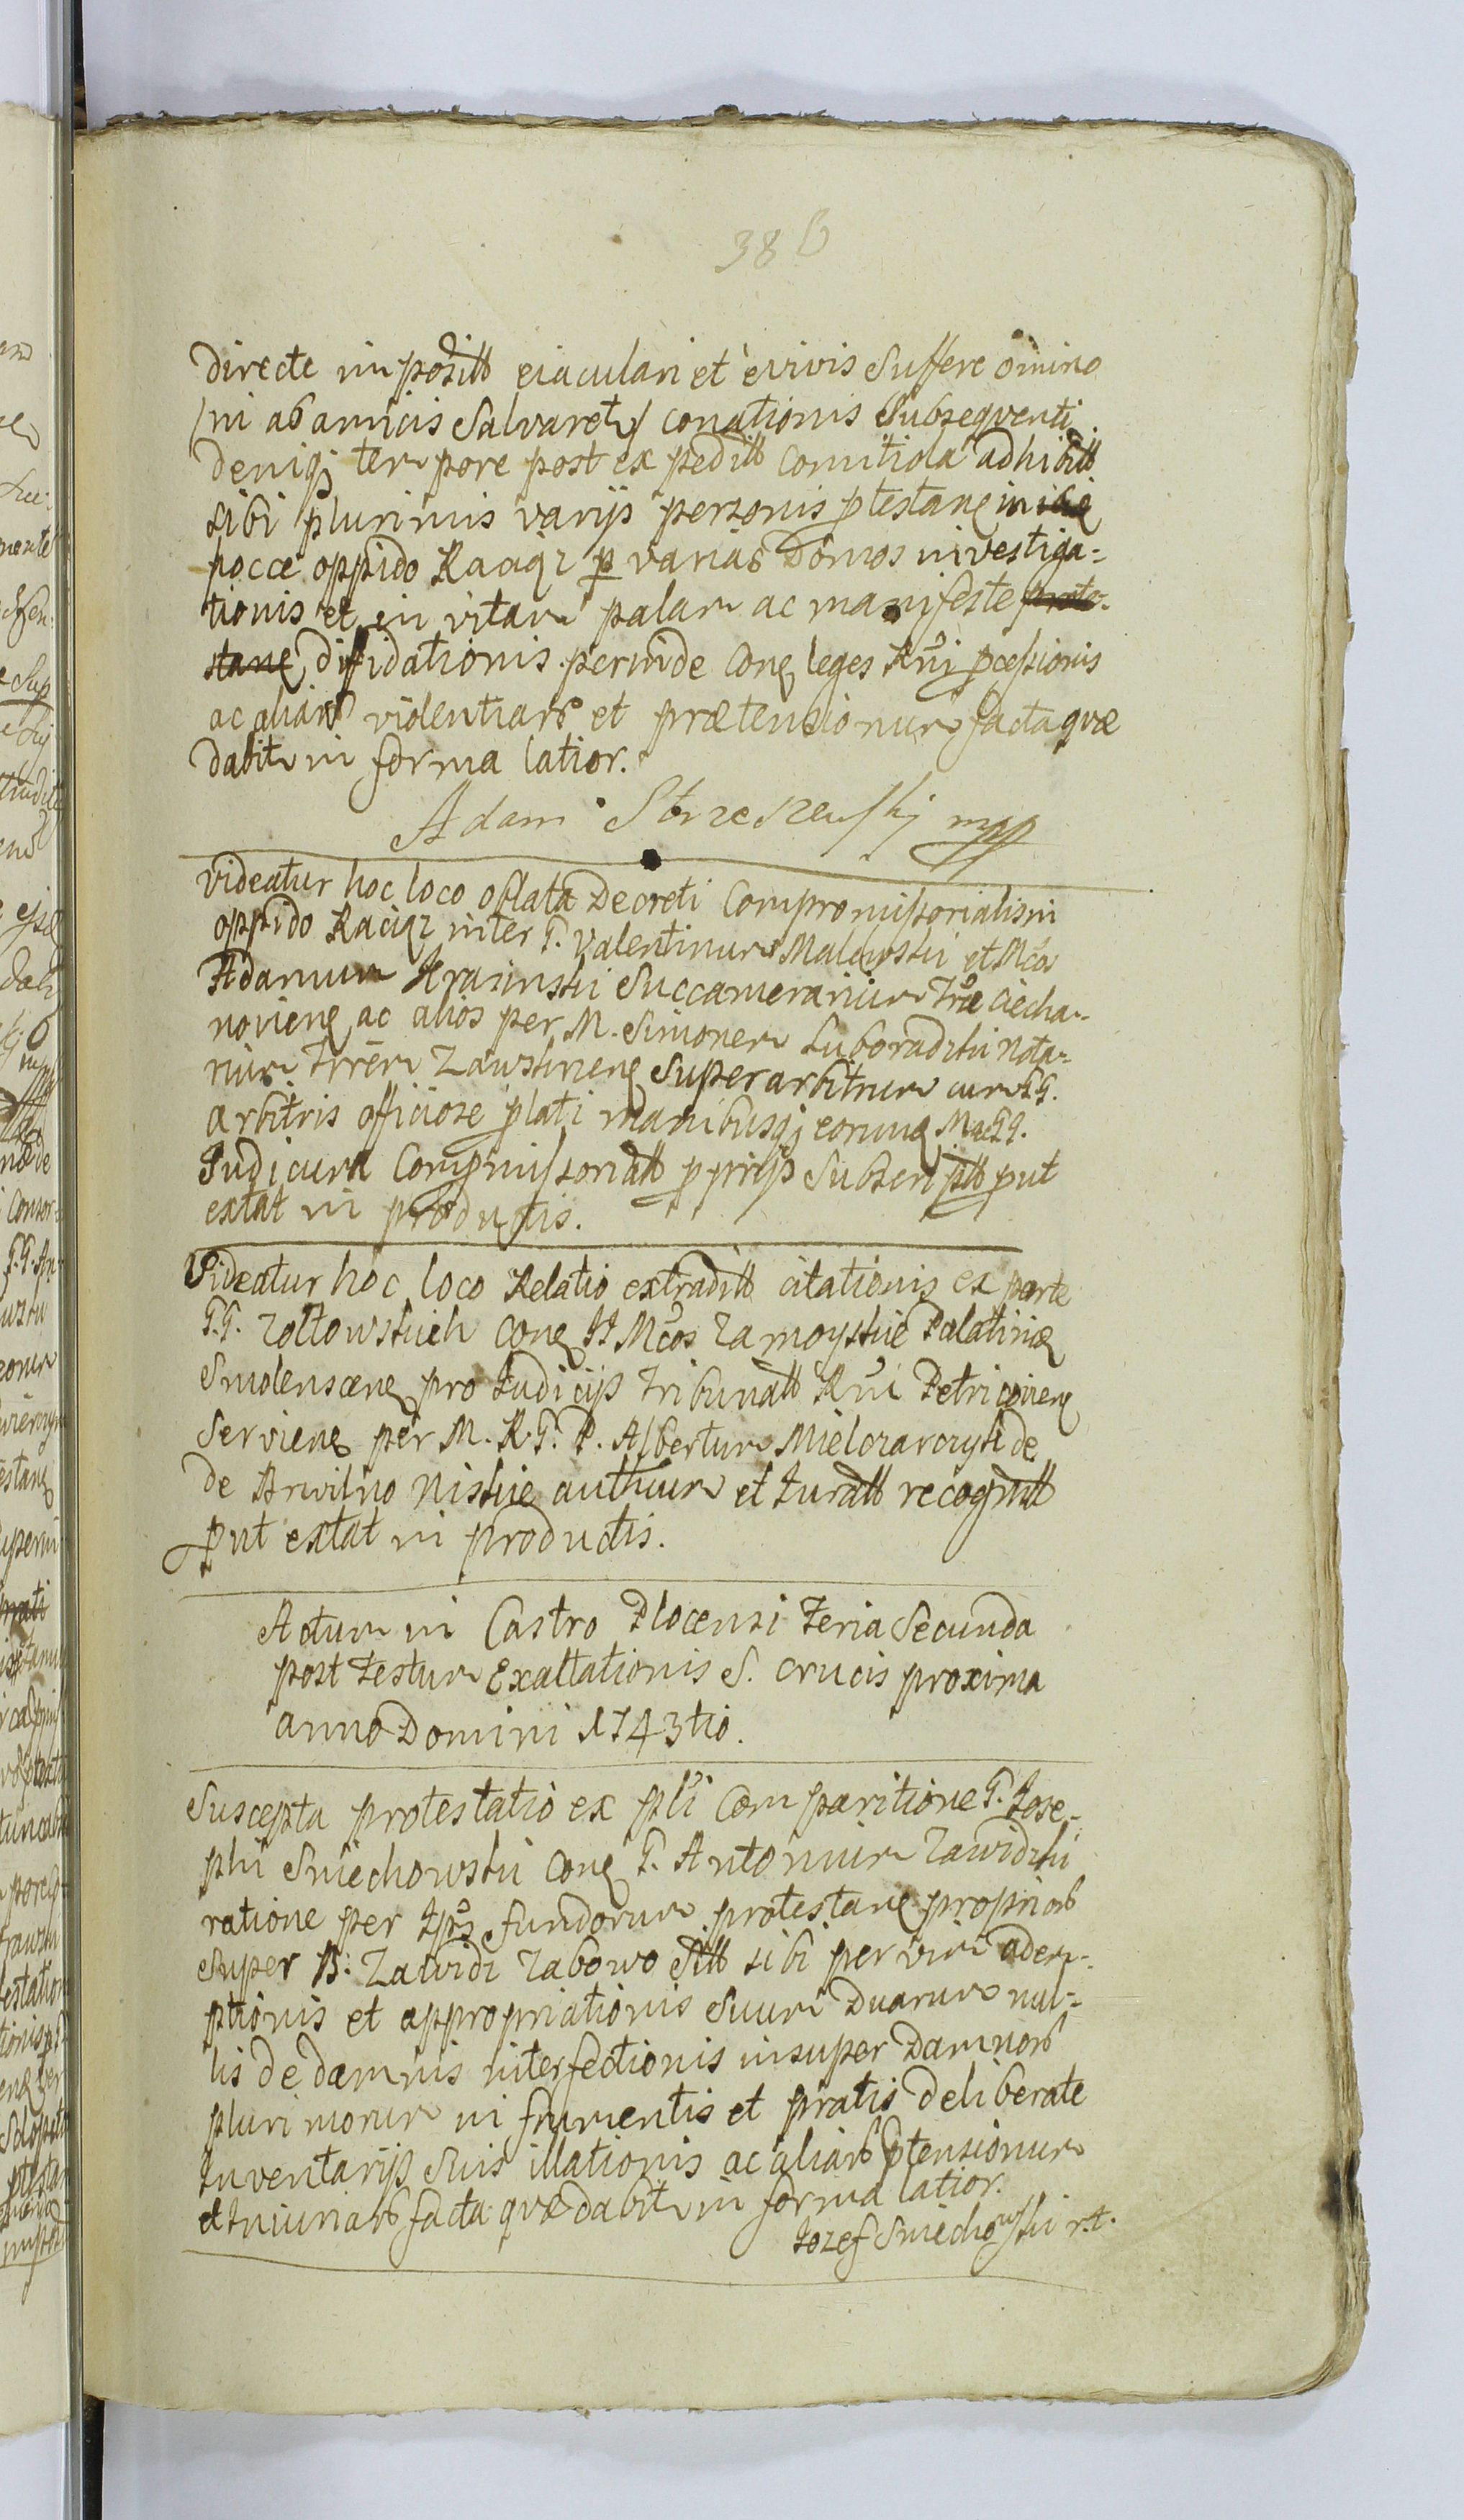 38 b
directe imposit ejaculari et è vivis sufferre omino
/ni ab amicis salvaret/ conationis subsequenti
deniq tempore post expedit Comitiola adhibit
sibi plurimis varijs personis ptestane in
hocce oppido Raciąz p varias Domos investiga=
tionis et in vitam palam ac manifeste
diffidationis perinde Cone leges Rni pcessionis
ac aliar violentiar et prætensionum facta quæ
dabit in forma latior.
Adam Strzeszewskj mpp
Videatur hoc loco oblata Decreti Compromissorialis in
oppido Raciąz inter G. Valentinum Malewski et Mcos
Adamum Krasinski Succamerarium Træ Ciecha=
noviene ac alios per M. Simonem Luboradzki Nota=
rium Trrem Zawskriene Superarbitrum cum GG.
arbitris officiose plati manibusq eorum MGG.
Judicum Compmissorialt pprijs Subscript put
extat in productis.
Videatur hoc loco Relatio extradit citationis ex parte
G.G. Zołtowskich Cone JJ Mcos Zamoyskie Palatin
Smolenscene pro Judicijs Tribunalt Rni Petricoviene
serviene per M. R. G. P. Albertum Mielczarczyk de
de Brwilno Niskie authum et Jurat recognit
put extat in productis.
Actum in Castro Plocensi Feria Secunda
post Festum Exaltationis S. Crucis proxima
anno Domini 1743tio.
Suscepta protestatio ex psli Comparitione G. Jose=
phi Smiechowski Cone G. Antonium Zawidzki
ratione per Jps fundorum protestane proprior
super B: Zawidz Zabowo sit sibi per vim adem=
ptionis et appropriationis Suum Duarum nul=
lis de damnis interfectionis insuper Damnor
plurimorum in frumentis et pratis deliberate
Inventarijs Suis illationis ac aliar ptensionum
et Iniuriar facta quæ dabit in forma latior.
Jozef Smiechowski r.t.